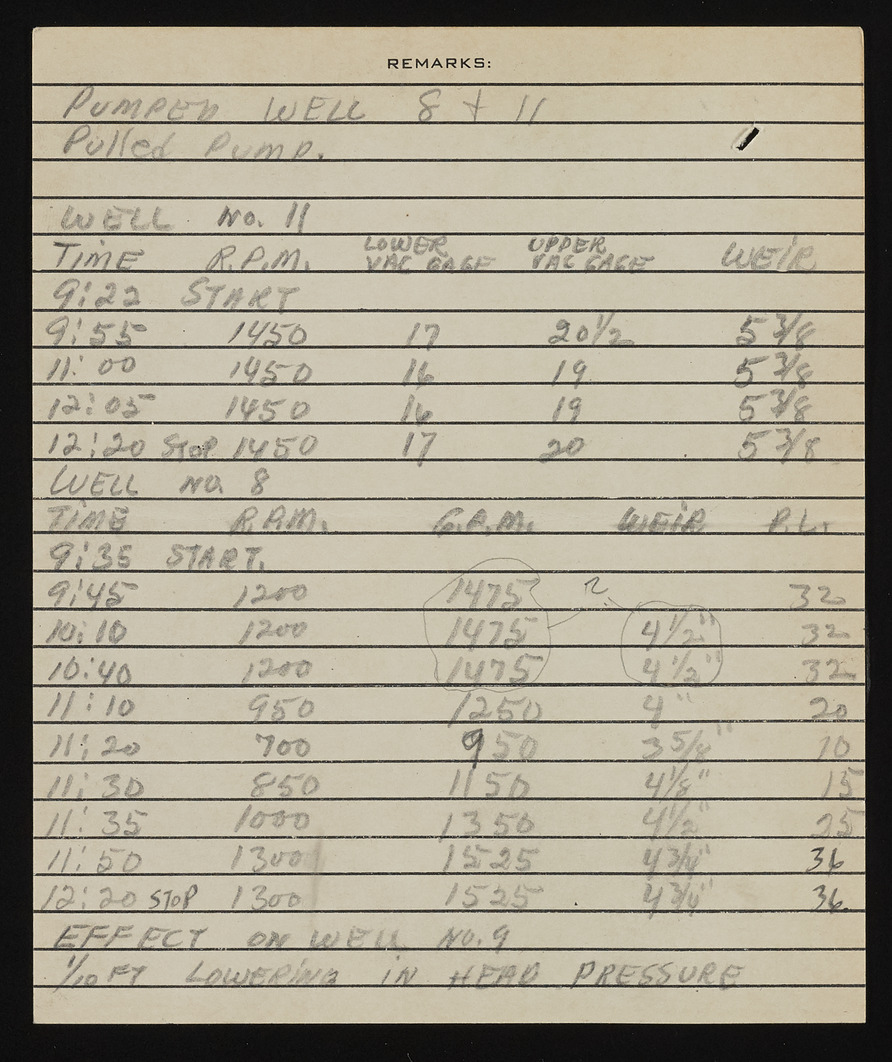 REMARKS:
PUMPED WELL 8 + 11
Pulled Pump.
WELL No. 11
TIME R.P.M. LOWER VAC GAGE UPPER VAC GAGE WEIR
9:22 START
9:55 1450 17 20 1/2 5 3/8
11:00 1450 16 19 5 3/8
12:05 1450 16 19 5 3/8
12:20 STOP 1450 17 20 5 3/8
WELL NO. 8
TIME R.P.M. G.P.M. WEIR P.L.
9:35 START.
9:45 1200 1475 ? 32
10:10 1200 1475 4 1/2" 32
10:40 1200 1475 4 1/2" 32
11:10 950 1250 4" 20
11:20 700 950 3 5/8" 10
11:30 850 1150 4 1/8" 15
11:35 1000 1350 4 1/2" 25
11:50 1300 1525 4 3/4" 36
12:20 STOP 1300 1525 4 3/4" 36.
EFFECT ON WELL NO. 9
1/10 FT LOWERING IN HEAD PRESSURE